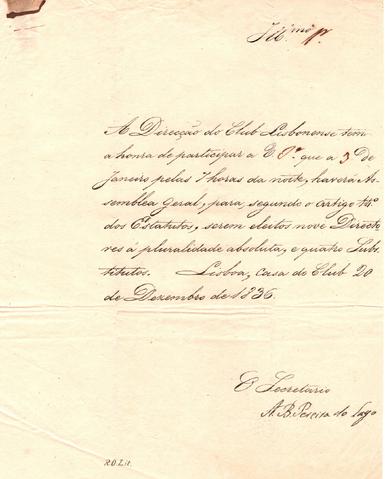 Ill.mo Sr.
A Direcção do Club Lisbonense tem
a honra de participar a V. S.ª que a 3 de
Janeiro pelas 7 horas da noite, haverá As-
semblea Geral, para segundo o artigo 14º
dos Estatutos, serem eleitos nove Directo-
res á pluralidade absoluta, e quatro Subs-
titutos. Lisboa, Casa do Club 20
de Dezembro de 1836.
O Secretario
A. B. Pereira do Lago
R.O.Lit.